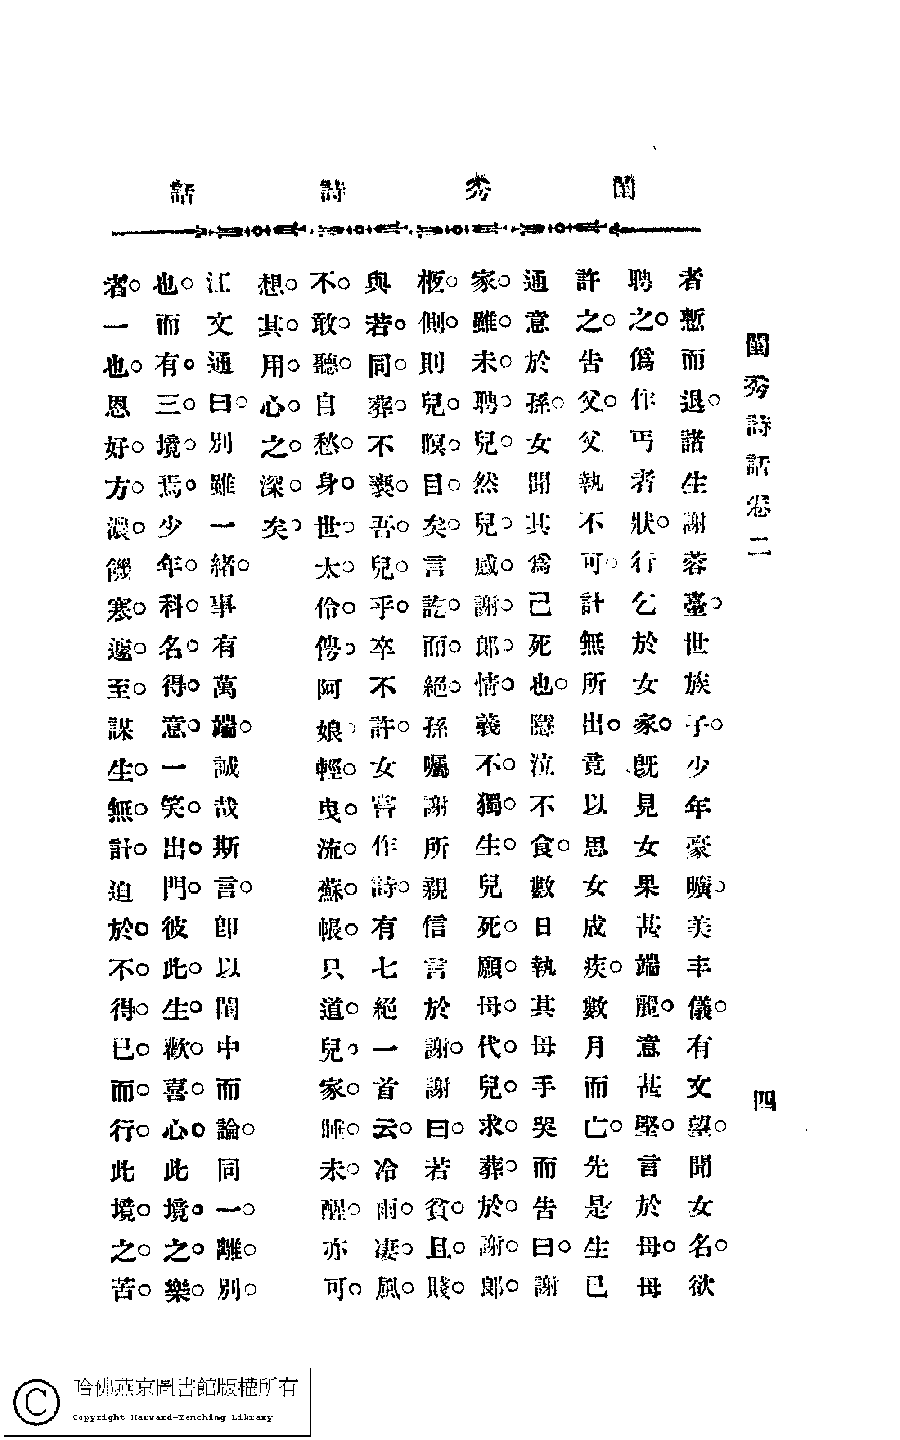 閨秀詩話
閨秀詩話卷二 四
者慙而退。諸生謝蓉臺。世族子。少年豪曠。美丰儀。有文望。聞女名。欲
聘之。爲作丐者狀。行乞於女家。既見女果甚端麗。意甚堅。言於母。母
許之。告父。父執不可。計無所出。竟以思女成疾。數月而亡。先是生已
通意於孫。女聞其爲己死也。隱泣不食。數日執其母手哭而告曰。謝
家。雖。未。聘。兒。然兒。感。謝。郎。情。義不。獨。生。兒死。願。母。代。兒。求。葬。於。謝。郎。
柩。側。則兒。瞑。目。矣。言訖。而。絕。孫囑謝所親信言於謝。謝曰。若貧。且。賤。
與若。同。葬。不褻。吾。兒。乎。卒不許。女嘗作詩。有七絕一首云。冷雨。凄。風。
不。敢。聽。自愁。身。世。太。伶。俜。阿娘。輕。曳。流。蘇。帳。只道。兒。家。睡。未。醒。亦可。
想。其。用。心。之。深。矣。
江文通曰。別雖一緒。事有萬端。誠哉斯言。即以閨中而論。同一。離。別。
也。而有。三。境。焉。少年。科。名。得。意。一笑。出。門。彼此。生。歡。喜。心。此境。之。樂。
者。一也。恩好。方。濃。饑寒。遽。至。謀生。無。計。迫於。不。得。已。而。行。此境。之。苦。
哈佛燕京圖書館版權所有
Copyright Harvard-Yenching Library